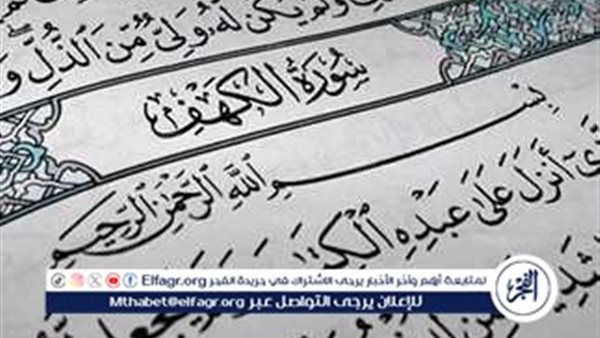 وَلَمْ يَكُن لَّهُۥ وَلِىٌّ مِّنَ ٱلذُّلِّ
سُورَةُ الكَهْفِ
بِسْمِ اللَّهِ الرَّحْمَٰنِ الرَّحِيمِ
أَنزَلَ عَلَىٰ عَبْدِهِ ٱلْكِتَٰبَ
لمتابعة أهم وآخر الأخبار يرجى الاشتراك في جريدة الفجر Elfagr.org
للإعلان يرجى التواصل عبر Mthabet@elfagr.org
الفجر